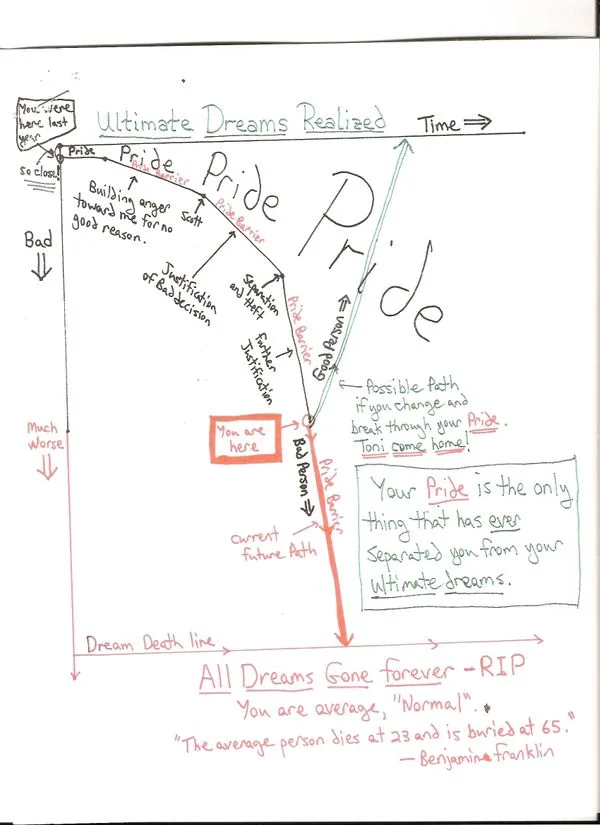 You were
here last
year
so close!
Ultimate Dreams Realized
Time ⇒
Pride
Pride
Pride
Pride
Pride Barrier
Pride Barrier
Building anger
toward me for no
good reason.
Scott
Bad
Justification
of Bad decision
Separation
and theft
Pride Barrier
Further
Justification
Good Person ⇒
Possible Path
if you change and
break through your Pride.
Toni come home!
Much
Worse
You are
here
Bad Person ⇒
Pride Barrier
current
future Path
Your Pride is the only
thing that has ever
separated you from your
Ultimate dreams.
Dream Death line
All Dreams Gone forever - RIP
You are average, "Normal".
"The average person dies at 23 and is buried at 65."
- Benjamin Franklin